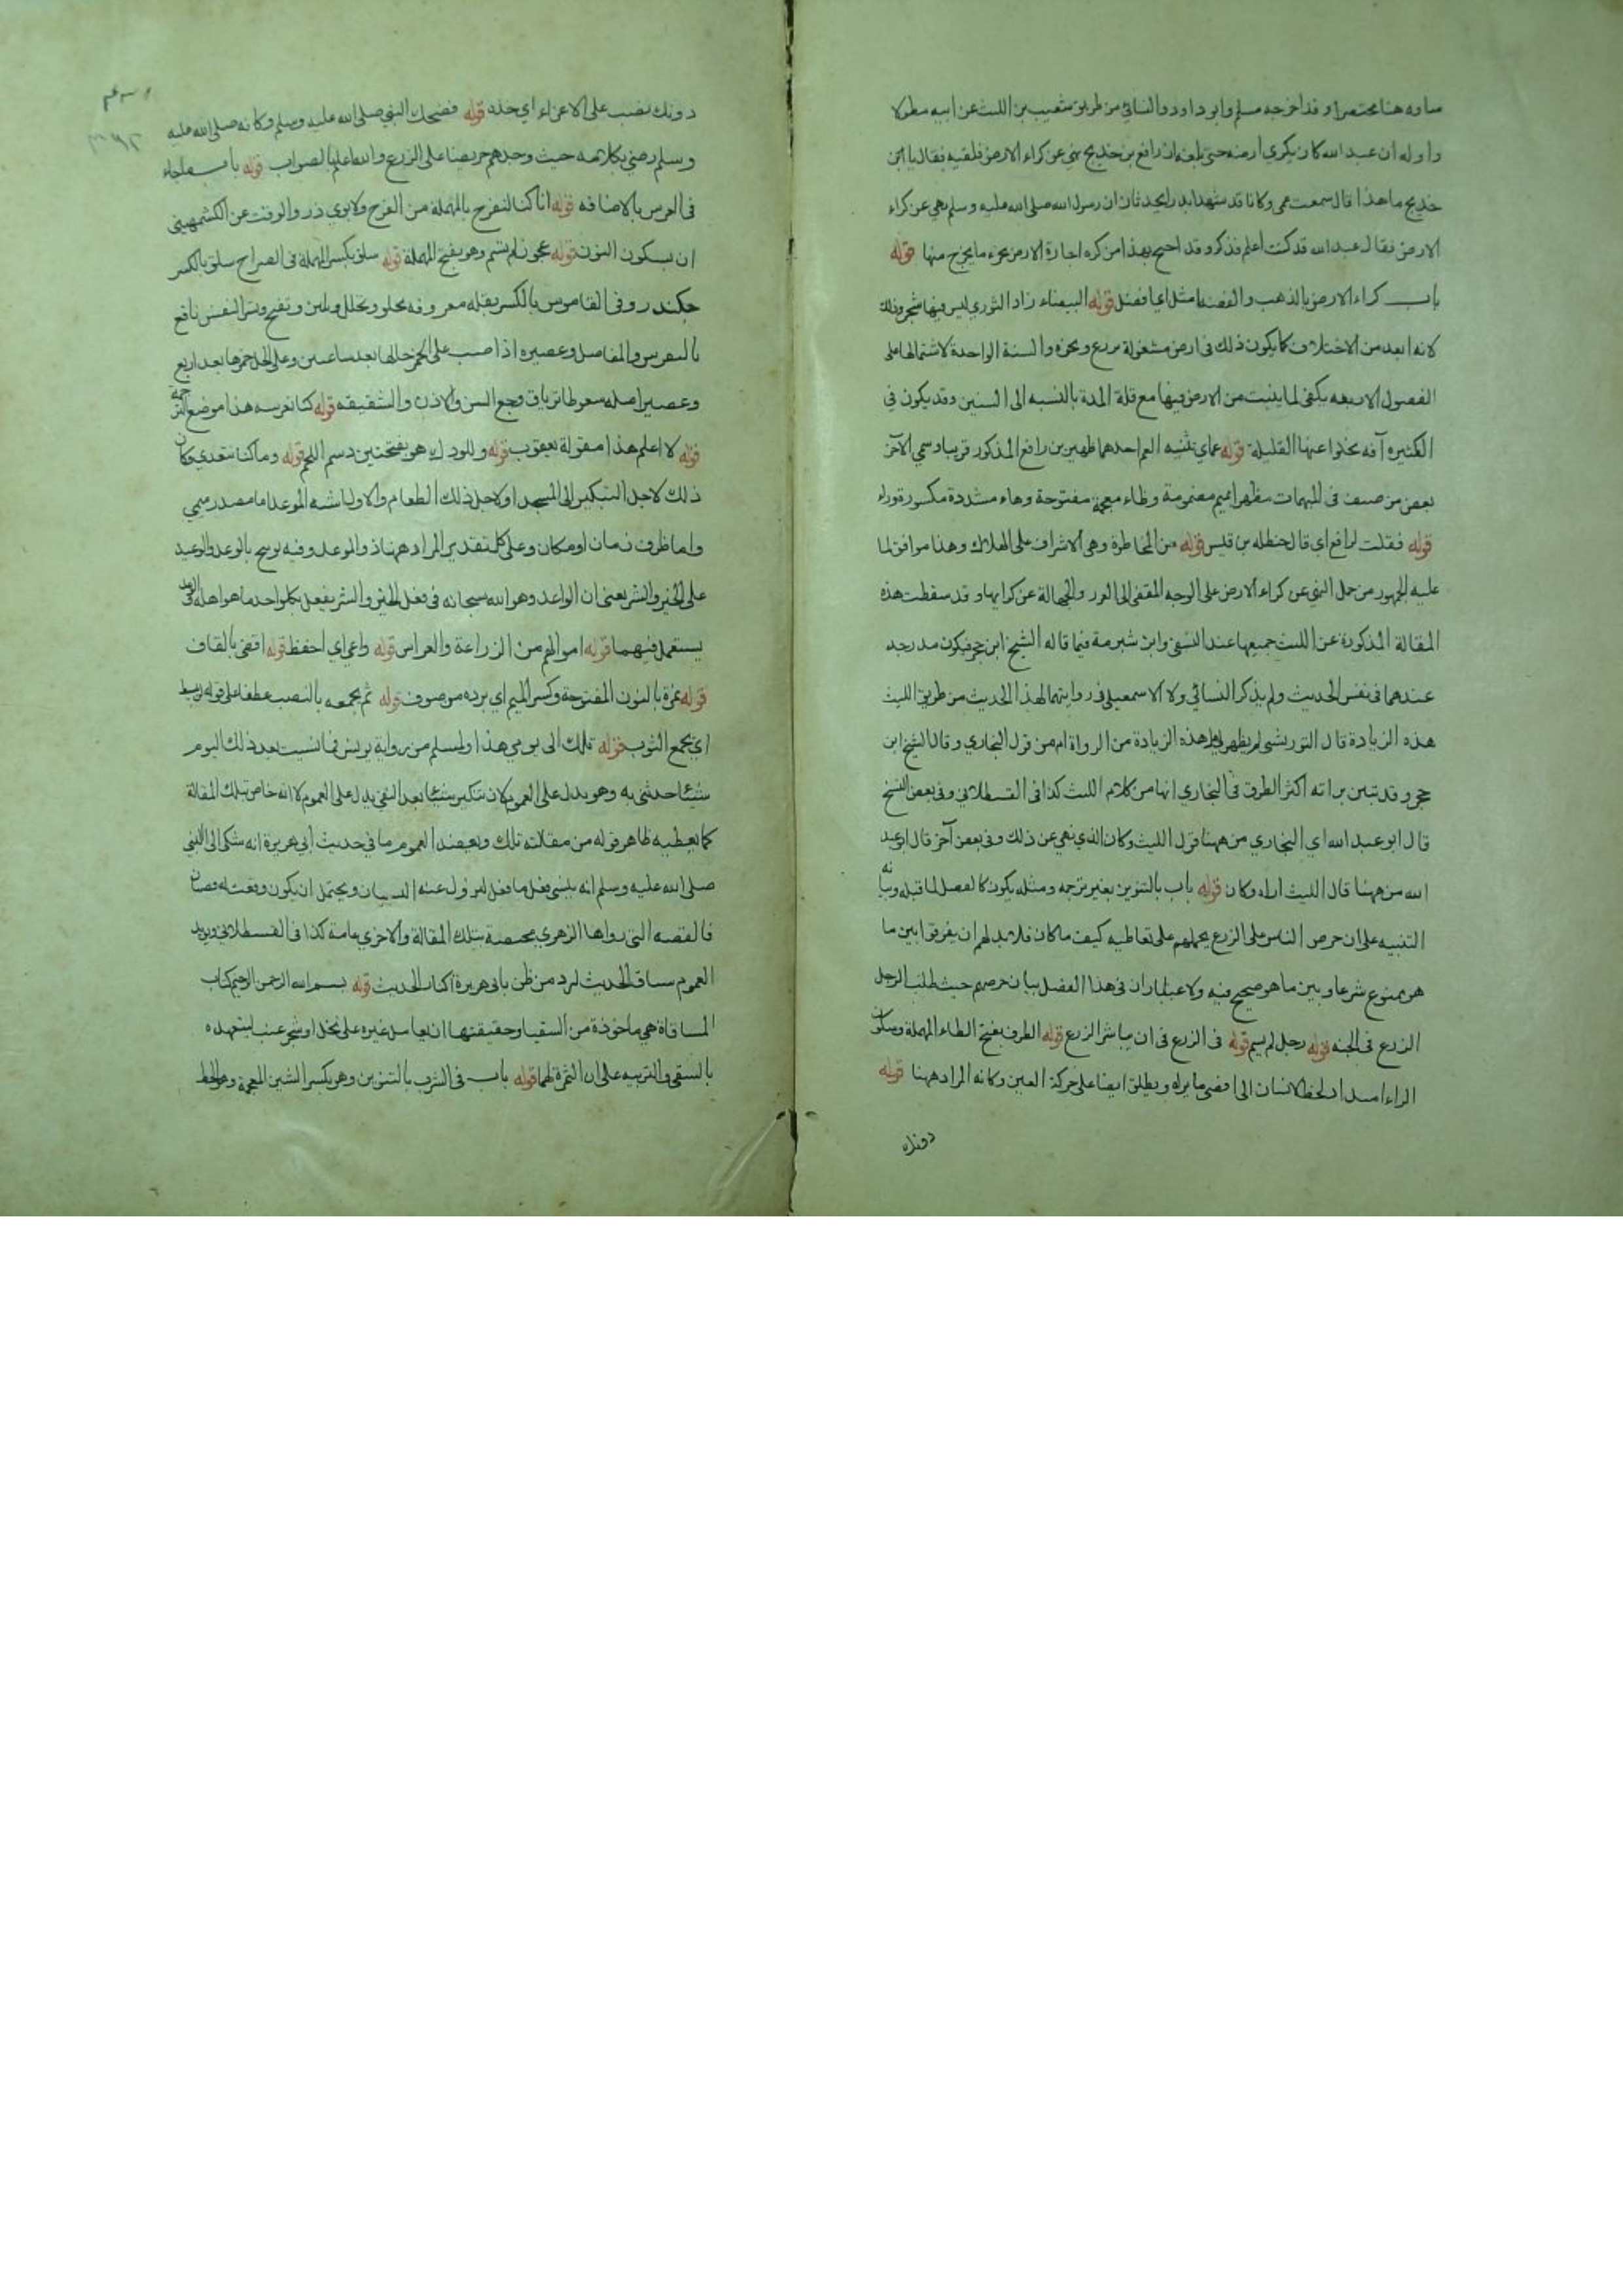 ساقه هنا مختصرا وقد اخرجه مسلم وابو داود والنسائي من طريق شعيب بن الليث عن ابيه مطولا
واوله ان عبد الله كان يكري ارضه حتى بلغه ان رافع بن خديج نهي عن كراء الارض فلقيه فقال يا ابن
خديج ما هذا قال سمعت عمي وكانا قد شهدا بدرا يحدثان ان رسول الله صلى الله عليه وسلم نهي عن كراء
الارض فقال عبد الله قد كنت اعلم فذكره وقد احتج بهذا من كره اجارة الارض بجزء ما يخرج منها قوله
باب كراء الارض بالذهب والفضة ان امثل اي افضل قوله البيضاء زاد الثوري ليس فيها شجر وذلك
لانه ابعد من الاختلاف كما يكون ذلك في ارض مشغولة بزرع ونحوه والسنة الواحدة لاشتمالها على
الفصول الاربعه يكفي لما ينبت من الارض فيها مع قلة المدة بالنسبه الى السنين وقد يكون في
الكثيره آفه يخلوا عنها القليلة قوله عماي تثنيه العم احدهما ظهير بن رافع المذكور قريبا وسمي الآخر
بعض من صنف في المبهمات مظهرا بميم مضمومة وظاء معجمة مفتوحة وهاء مشددة مكسورة وراء
قوله فقلت لرافع اي قال حنظله بن قيس قوله من المخاطرة وهي الاشراف على الهلاك وهذا موافق لما
عليه الجمهور من حمل النهي عن كراء الارض على الوجه المقضي الى الغرر والجهالة عن كرايها وقد سقطت هذه
المقالة المذكورة عن الليث جميعها عند النسفي وابن شبرمة فيما قاله الشيخ ابن حجر فيكون مدرجه
عندهما في نفس الحديث ولم يذكر النسائي ولا الاسمعيلي في روايتهما لهذا الحديث من طريق الليث
هذه الزيادة قال التوربشتي لم يظهر لي هل هذه الزيادة من الرواة ام من قول البخاري وقال الشيخ ابن
حجر وقد تبين براته اكثر الطرق في البخاري انها من كلام الليث كذا في القسطلاني وفي بعض النسخ
قال ابو عبد الله اي البخاري من ههنا قول الليث وكان الذي نهي عن ذلك وفي بعض آخر قال ابو عبد
الله من ههنا قال الليث اراه وكان قوله باب بالتنوين بغير ترجمه ومثله يكون كالفصل لما قبله وبيانه
التنبيه على ان حرص الناس على الزرع يحملهم على تعاطيه كيف ما كان فلا بد لهم ان يفرقوا بين ما
هو ممنوع شرعا وبين ما هو صحيح فيه ولاعتبار ان في هذا الفصل بيان حرصهم حيث طلب الرجل
الزرع في الجنه قوله رجل لم يسم قوله في الزرع في ان يباشر الزرع قوله الطرف بفتح الطاء المهملة وسكون
الراء امتداد لحظ الانسان الى اقصي ما يراه ويطلق ايضا على حركة العين وكانه المراد ههنا قوله
دونك
دونك نصب على الاغراء اي خذه قوله فضحك النبي صلى الله عليه وسلم وكانه صلى الله عليه
وسلم رضي بكلامه حيث وجدهم حريصا على الزرع والله اعلم بالصواب قوله باب ما جاء
في الغرس بالاضافه قوله انا كنا لنفرح بالمهملة من الفرح ولابوي ذر والوقت عن الكشمهيني
ان بسكون النون قوله عجوز لم تسم وهو بفتح المهملة قوله سلق بكسر المهملة في الصراح سلق بالكسر
چكندر وفي القاموس بالكسر بقله معروفه يحلو ويحلل ويلين ويفتح ويسر النفس نافع
بالنقرس والمفاصل وعصيره اذا صب على الخمر خللها بعد ساعتين وعلى الخل خمرها بعد اربع
وعصير اصله سعوطا ترياق وجع السن والاذن والشقيقه قوله كنا نغرسه هذا موضع الترجمة
قوله لا اعلم هذا مقولة يعقوب قوله وللودك هو بفتحتين دسم اللحم قوله وما كنا نتغدي وكان
ذلك لاجل التبكير الى المسجد او لاجل ذلك الطعام والاول اشبه الموعد اما مصدر ميمي
واما ظرف زمان او مكان وعلى كل تقدير المراد ههنا ذو الموعد وفيه توسع بالوعد والوعيد
على الخير والشر يعني ان الواعد وهو الله سبحانه في فعل الخير والشر يفعل بكل واحد ما هو اهله الوعد في
يستعمل فيهما قوله اموالهم من الزراعة والغراس قوله واعي اي احفظ قوله اقضي بالقاف
قوله نمرة بالنون المفتوحة وكسر الميم اي برده من صوف قوله ثم يجمعه بالنصب عطفا على قوله يبسط
اي يجمع الثوب قوله تلك الى يومي هذا ولمسلم من رواية يونس فما نسيت بعد ذلك اليوم
شيئا حدثني به وهو يدل على العموم لان تنكير شيئا بعد النفي يدل على العموم لا انه خاص بتلك المقالة
كما يعطيه ظاهر قوله من مقالته تلك ويعضد العموم ما في حديث ابي هريرة انه شكى الى النبي
صلى الله عليه وسلم انه ينسى ففعل ما فعل ليزول عنه النسيان ويحتمل ان يكون وقعت له قصتان
فالقصه التي رواها الزهري مختصة بتلك المقالة والاخري عامة كذا في القسطلاني ويريد
العموم سياق الحديث لرد من ظن بابي هريرة اكثار الحديث قوله بسم الله الرحمن الرحيم كتاب
المساقاة هي ماخوذة من السقيا وحقيقتها ان يعامل غيره على نخل او شجر عنب ليتعهده
بالسقي والتربيه على ان الثمرة لهما قوله باب في الشرب بالتنوين وهو بكسر الشين المعجمة وهو الحظ